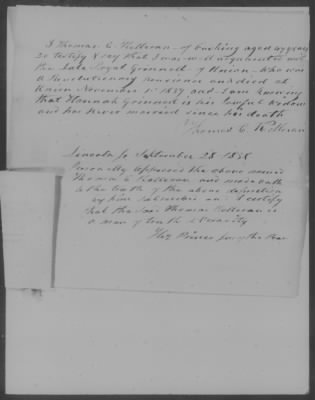 I Thomas C Kelleran - of Cushing aged
do testify & say that I was well acquainted with
the late Royal Grinnell of Union - who was
a Revolutionary pensioner and died at
Union November 1st 1837 and I am knowing
that Hannah Grinnell is his lawful widow
and has never married since his death
Thomas C Kelleran
Lincoln Ss September 28 1838
Personally appeared the above named
Thomas C Kelleran and made oath
to the truth of the above deposition
by him subscribed and I certify
that the said Thomas Kelleran is
a man of truth & veracity
Prince Jus of the Peace